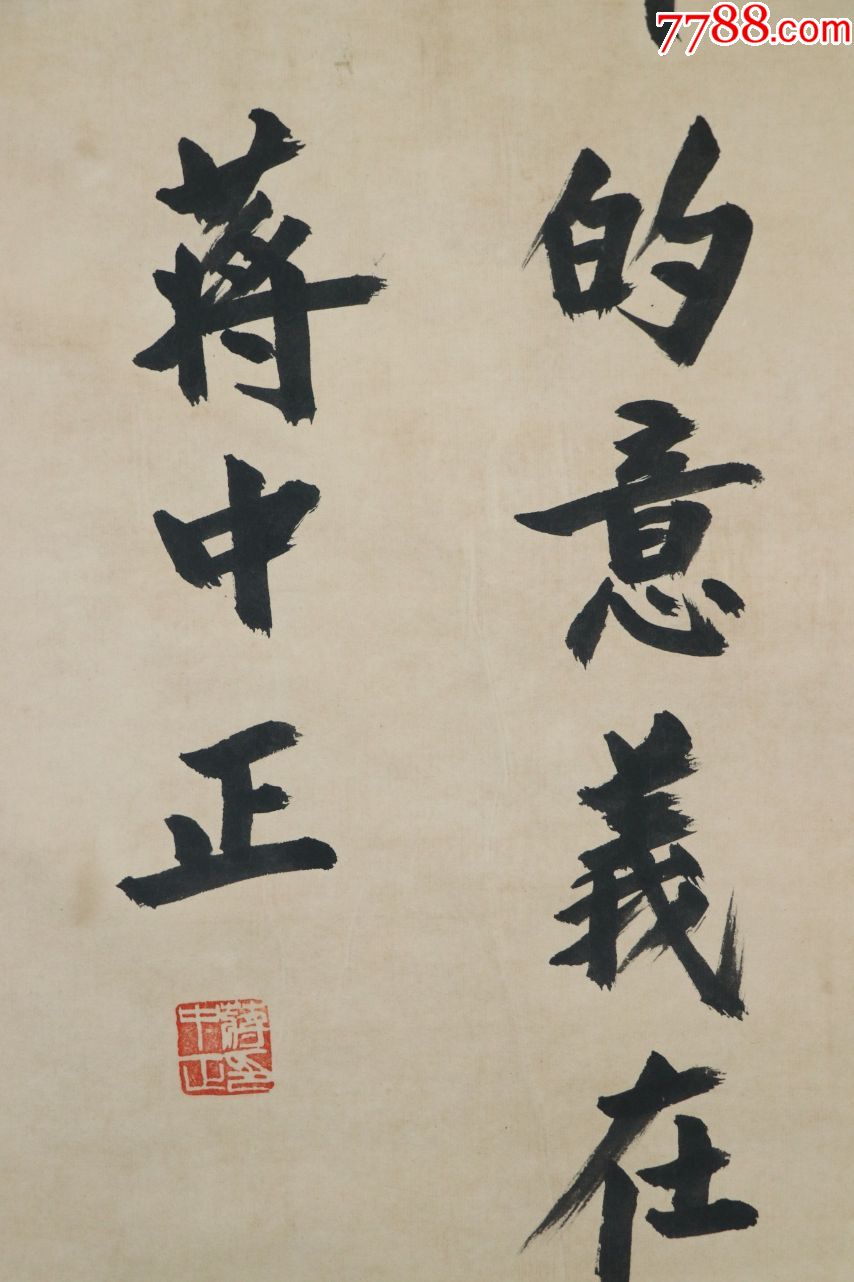 7788.com
的意義在
蔣中正
蔣中正印